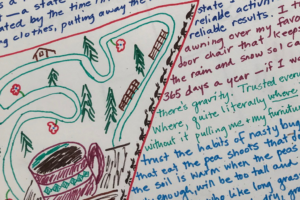 is a — a state
ated by the time in
g clothes, putting away the
state
reliable activit
reliable results. I t
awning over my favor
door chair that keeps
the rain and snow so I ca
365 days a year — if I wa
there's gravity. Trusted every
where, quite literally where
without it pulling me & my furnitur
trust the habits of nasty bug
that eat the pea shoots that I
the soil is warm when the peas
enough, will be too tall and
who like long grass